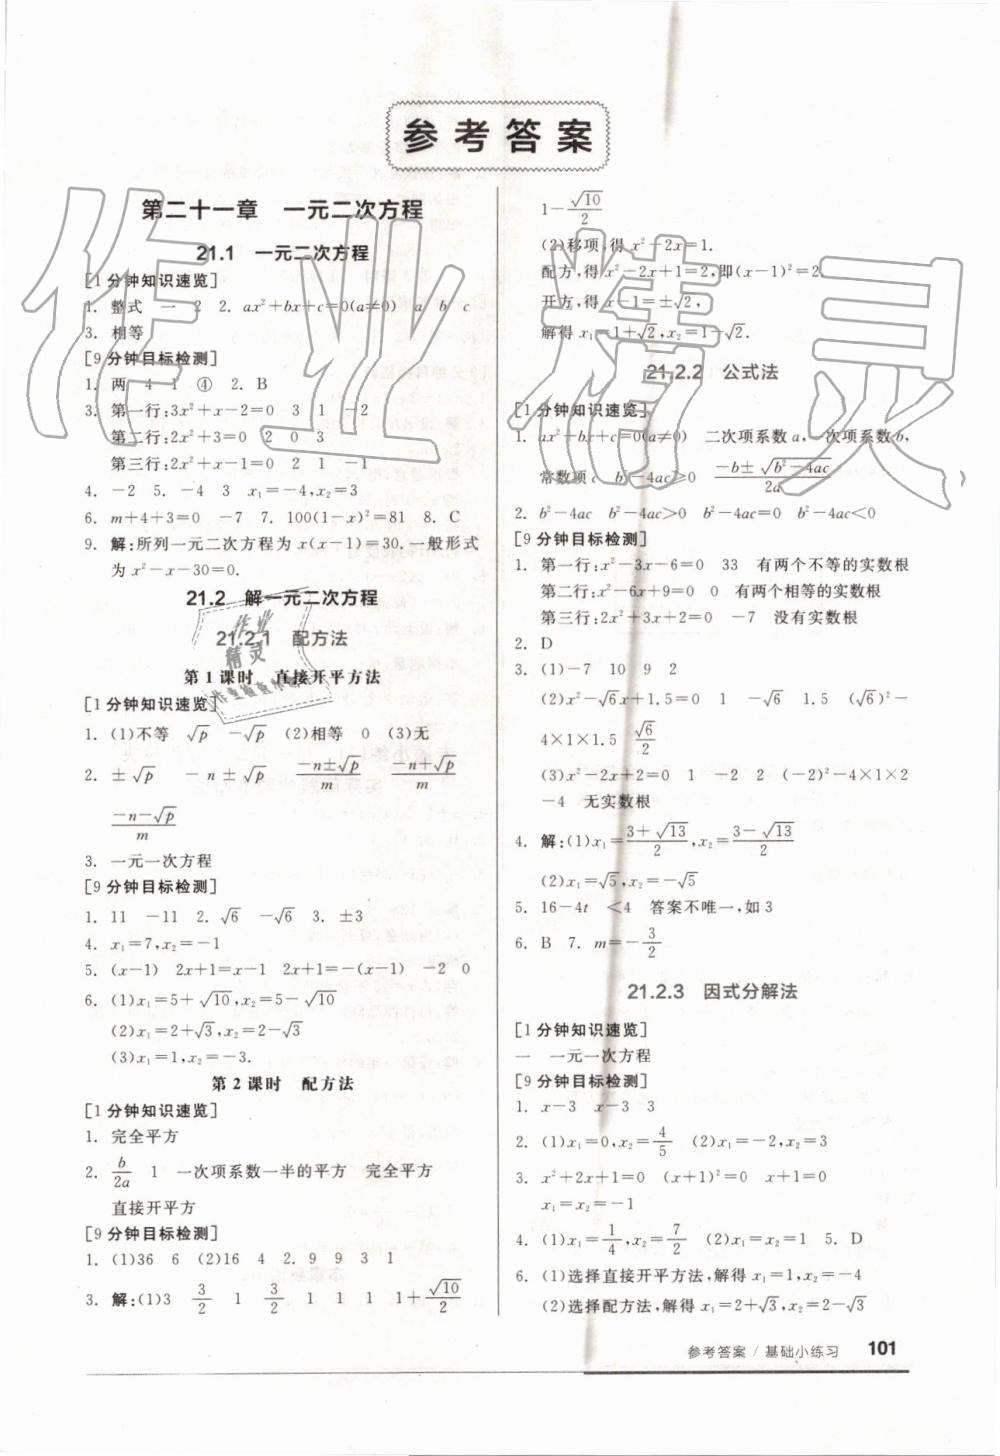 参考答案
第二十一章 一元二次方程
21.1 一元二次方程
[1分钟知识速览]
1. 整式 一 2 2. ax²+bx+c=0(a≠0) a b c
3. 相等
[9分钟目标检测]
1. 两 4 1 ④ 2. B
3. 第一行:3x²+x-2=0 3 1 -2
第二行:2x²+3=0 2 0 3
第三行:2x²+x-1=0 2 1 -1
4. -2 5. -4 3 x₁=-4,x₂=3
6. m+4+3=0 -7 7. 100(1-x)²=81 8. C
9. 解:所列一元二次方程为x(x-1)=30,一般形式
为x²-x-30=0.
21.2 解一元二次方程
21.2.1 配方法
第1课时 直接开平方法
[1分钟知识速览]
1. (1)不等 √p -√p (2)相等 0 (3)无
2. ±√p -n±√p (-n±√p)/m (-n+√p)/m
(-n-√p)/m
3. 一元一次方程
[9分钟目标检测]
1. 11 -11 2. √6 -√6 3. ±3
4. x₁=7,x₂=-1
5. (x-1) 2x+1=x-1 2x+1=-(x-1) -2 0
6. (1)x₁=5+√10,x₂=5-√10
(2)x₁=2+√3,x₂=2-√3
(3)x₁=1,x₂=-3.
第2课时 配方法
[1分钟知识速览]
1. 完全平方
2. b/2a 1 一次项系数一半的平方 完全平方
直接开平方
[9分钟目标检测]
1. (1)36 6 (2)16 4 2. 9 9 3 1
3. 解:(1)3 3/2 1 3/2 1 1 1 1+√10/2
1-√10/2
(2)移项,得x²-2x=1.
配方,得x²-2x+1=2,即(x-1)²=2
开方,得x-1=±√2,
解得x₁=1+√2,x₂=1-√2.
21.2.2 公式法
[1分钟知识速览]
1. ax²+bx+c=0(a≠0) 二次项系数a,一次项系数b,
常数项c b²-4ac≥0 (-b±√(b²-4ac))/2a
2. b²-4ac b²-4ac>0 b²-4ac=0 b²-4ac<0
[9分钟目标检测]
1. 第一行:x²-3x-6=0 33 有两个不等的实数根
第二行:x²-6x+9=0 0 有两个相等的实数根
第三行:2x²+3x+2=0 -7 没有实数根
2. D
3. (1)-7 10 9 2
(2)x²-√6x+1.5=0 1 -√6 1.5 (√6)²-
4×1×1.5 √6/2
(3)x²-2x+2=0 1 -2 2 (-2)²-4×1×2
-4 无实数根
4. 解:(1)x₁=(3+√13)/2,x₂=(3-√13)/2
(2)x₁=√5,x₂=-√5
5. 16-4t <4 答案不唯一,如3
6. B 7. m=-3/2
21.2.3 因式分解法
[1分钟知识速览]
一 一元一次方程
[9分钟目标检测]
1. x-3 x-3 3
2. (1)x₁=0,x₂=4/5 (2)x₁=-2,x₂=3
3. x²+2x+1=0 (x+1)²=0 x+1=0
x₁=x₂=-1
4. (1)x₁=1/4,x₂=7/2 (2)x₁=x₂=1 5. D
6. (1)选择直接开平方法,解得x₁=1,x₂=-4
(2)选择配方法,解得x₁=2+√3,x₂=2-√3
参考答案 / 基础小练习 101
作业精灵
作业
精灵